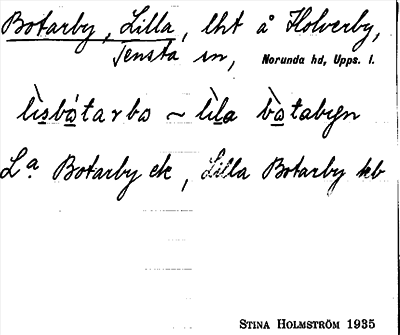 Botarby, Lilla, lht å Holverby,
Tensta sn, Norunda hd, Upps. l.
lìsbótarbo ~ lìla bòtabyn
Lᵃ Botarby ek, Lilla Botarby kb
STINA HOLMSTRÖM 1935